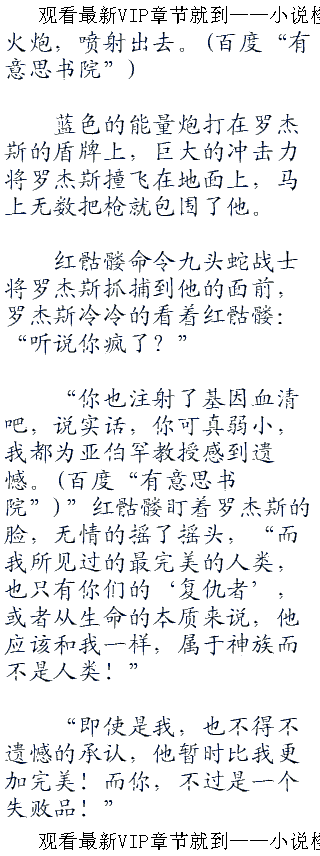 观看最新VIP章节就到——小说
火炮，喷射出去。(百度“有
意思书院”)
蓝色的能量炮打在罗杰
斯的盾牌上，巨大的冲击力
将罗杰斯撞飞在地面上，马
上无数把枪就包围了他。
红骷髅命令九头蛇战士
将罗杰斯抓捕到他的面前，
罗杰斯冷冷的看着红骷髅：
“听说你疯了？”
“你也注射了基因血清
吧，说实话，你可真弱小，
我都为亚伯罕教授感到遗
憾。(百度“有意思书
院”)”红骷髅盯着罗杰斯的
脸，无情的摇了摇头，“而
我所见过的最完美的人类，
也只有你们的‘复仇者’，
或者从生命的本质来说，他
应该和我一样，属于神族而
不是人类！”
“即使是我，也不得不
遗憾的承认，他暂时比我更
加完美！而你，不过是一个
失败品！”
观看最新VIP章节就到——小说